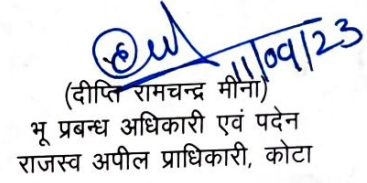 11/09/23
(दीप्ति रामचन्द्र मीना)
भू प्रबन्ध अधिकारी एवं पदेन
राजस्व अपील प्राधिकारी, कोटा